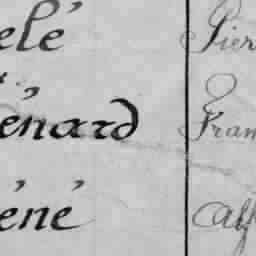 elé Pier
énard Fran
éné Alf